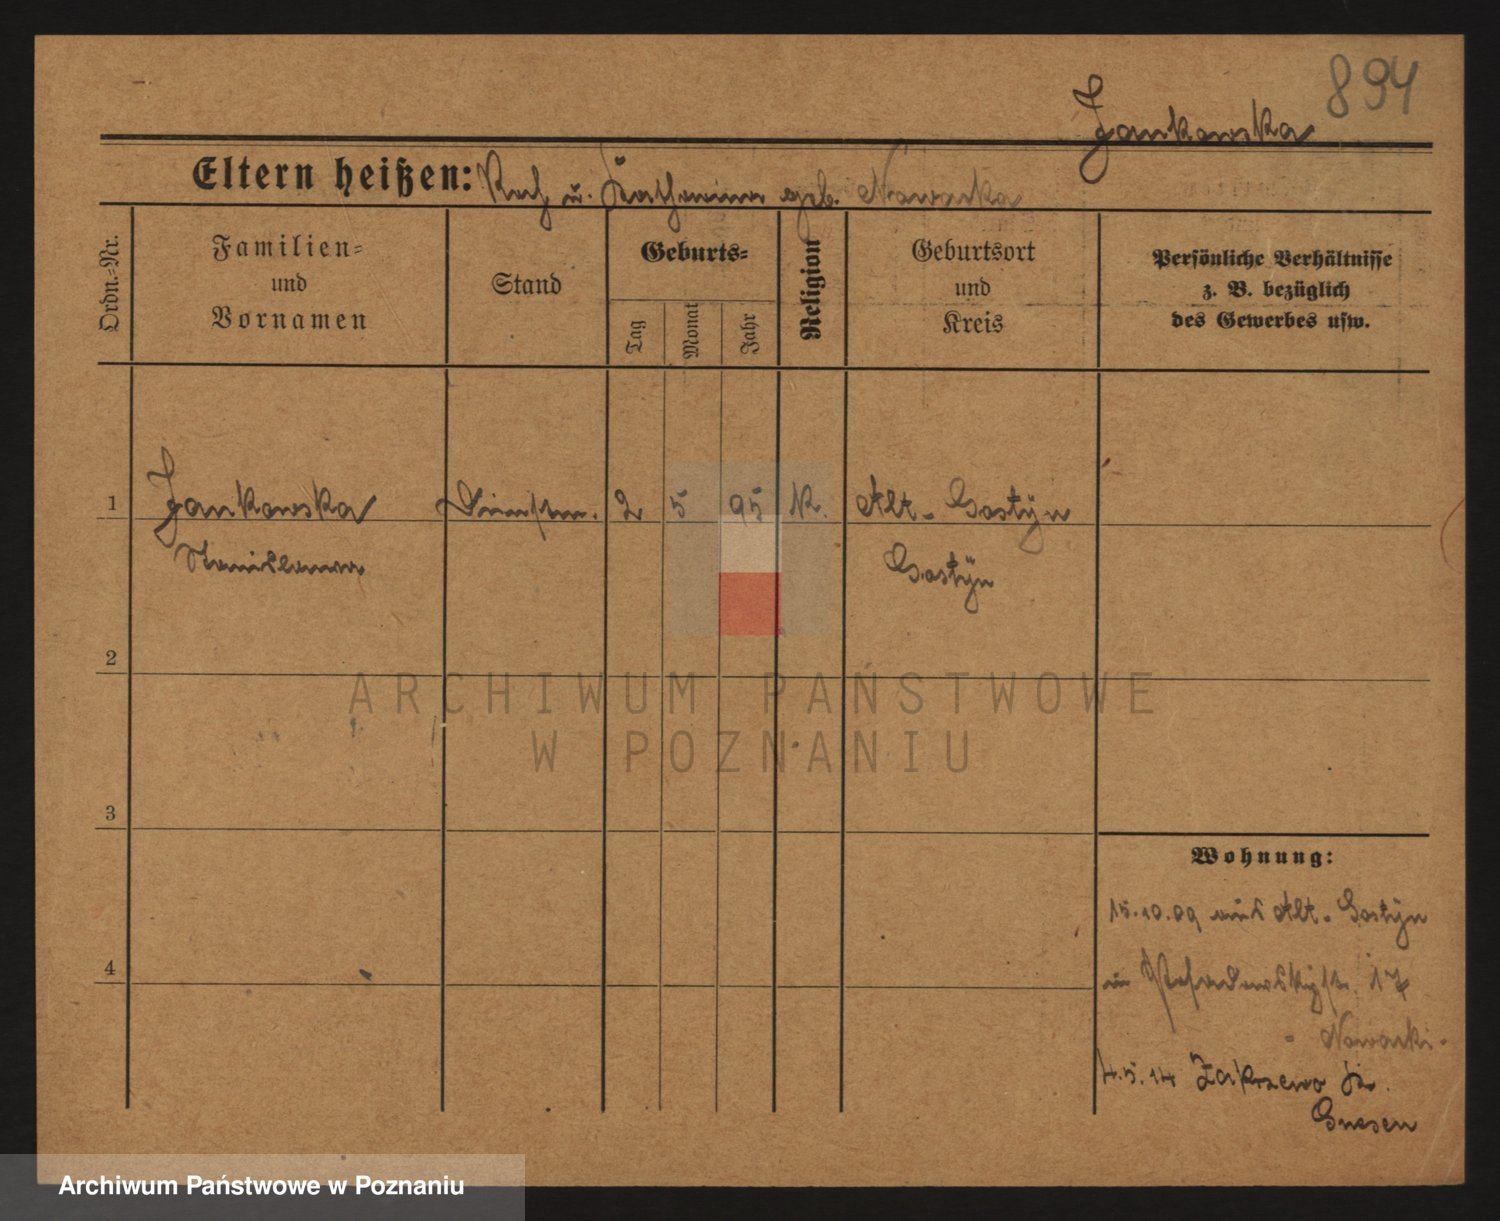 894
Jankowska
Eltern heißen: Roch u. Katharina geb. Nawarska
Ordn.=Nr.
Familien=
und
Vornamen
Stand
Geburts=
Tag
Monat
Jahr
Religion
Geburtsort
und
Kreis
Persönliche Verhältnisse
z. B. bezüglich
des Gewerbes usw.
1
Jankowska
Stanislawa
2 5 95 K. Alt-Gostÿn
Gostÿn
2
3
4
ARCHIWUM PAŃSTWOWE
W POZNANIU
Wohnung:
15.10.09 aus Alt-Gostÿn
17
4.5.14 Zakrzewo Kr.
Gnesen
Archiwum Państwowe w Poznaniu